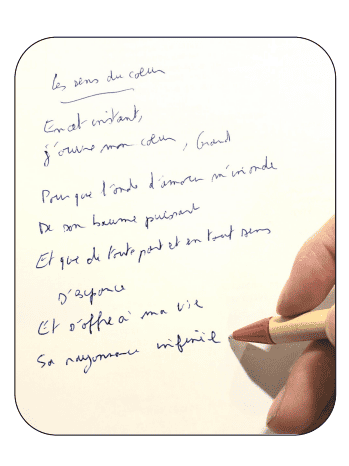 Les sens du coeur
En cet instant,
j'ouvre mon coeur, Grand
Pour que l'onde d'amour m'inonde
De son baume puissant
Et que de toute part et en tout sens
D'espance
Et s'offre à ma vie
Sa rayonnance infinie